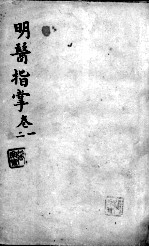 明醫指掌卷一
二